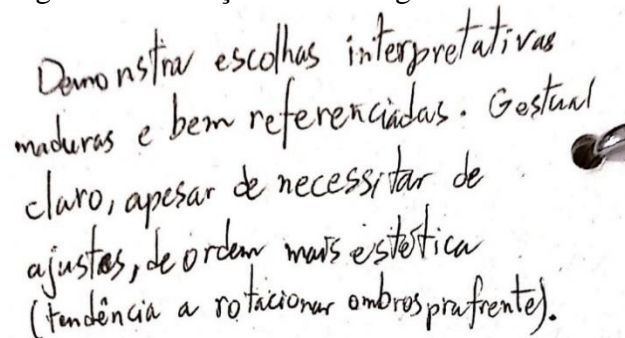 Demonstra escolhas interpretativas
maduras e bem referenciadas. Gestual
claro, apesar de necessitar de
ajustes, de ordem mais estética
(tendência a rotacionar ombros pra frente).